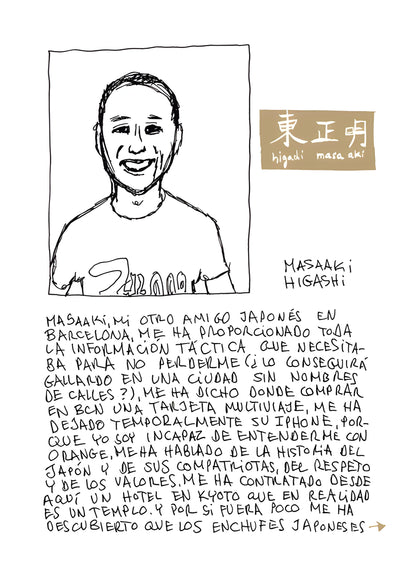 東 正 明
higashi masa aki
MASAAKI
HIGASHI
MASAAKI, MI OTRO AMIGO JAPONÉS EN
BARCELONA, ME HA PROPORCIONADO TODA
LA INFORMACIÓN TÁCTICA QUE NECESITA-
BA PARA NO PERDERME (¿LO CONSEGUIRÁ
GALLARDO EN UNA CIUDAD SIN NOMBRES
DE CALLES?), ME HA DICHO DONDE COMPRAR
EN BCN UNA TARJETA MULTIVIAJE, ME HA
DEJADO TEMPORALMENTE SU IPHONE, POR-
QUE YO SOY INCAPAZ DE ENTENDERME CON
ORANGE, ME HA HABLADO DE LA HISTORIA DEL
JAPÓN Y DE SUS COMPATRIOTAS, DEL RESPETO
Y DE LOS VALORES. ME HA CONTRATADO DESDE
AQUÍ UN HOTEL EN KYOTO QUE EN REALIDAD
ES UN TEMPLO. Y POR SI FUERA POCO ME HA
DESCUBIERTO QUE LOS ENCHUFES JAPONESES →